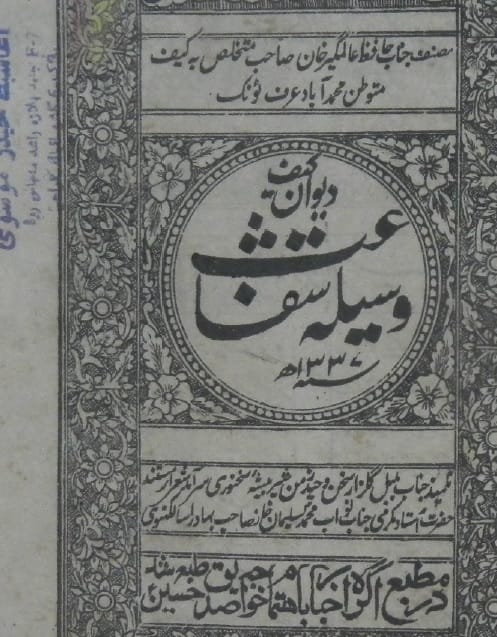 مصنفہ جناب حافظ عالمگیر خان صاحب متخلص بہ کیف
متوطن محمد آباد عرف ٹونک
دیوان کیف
وسیلہ شفاعت
سنہ ۱۳۳۷ھ
تلمیذ جناب بلبل گلزار سخن وحید زمن شیر بیشۂ سخنوری سرآمد شعرا مستند
حضرت استاد مکرمی جناب نواب محمد سلیمان خان صاحب بہادر اسد لکھنوی
در مطبع آگرہ اخبار باہتمام خواجہ صدیق حسین طبع شد